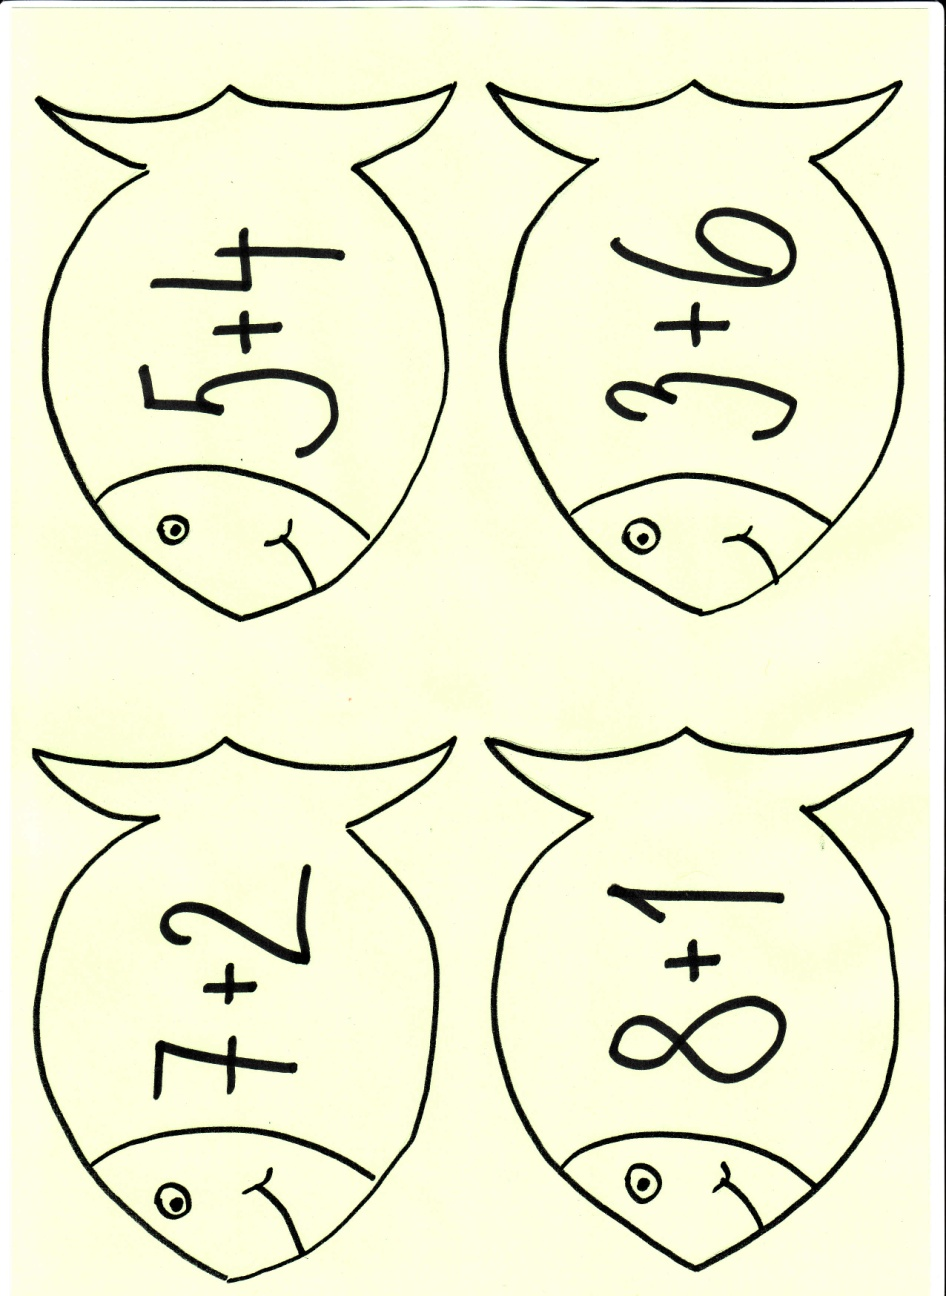 5+4
3+6
7+2
8+1